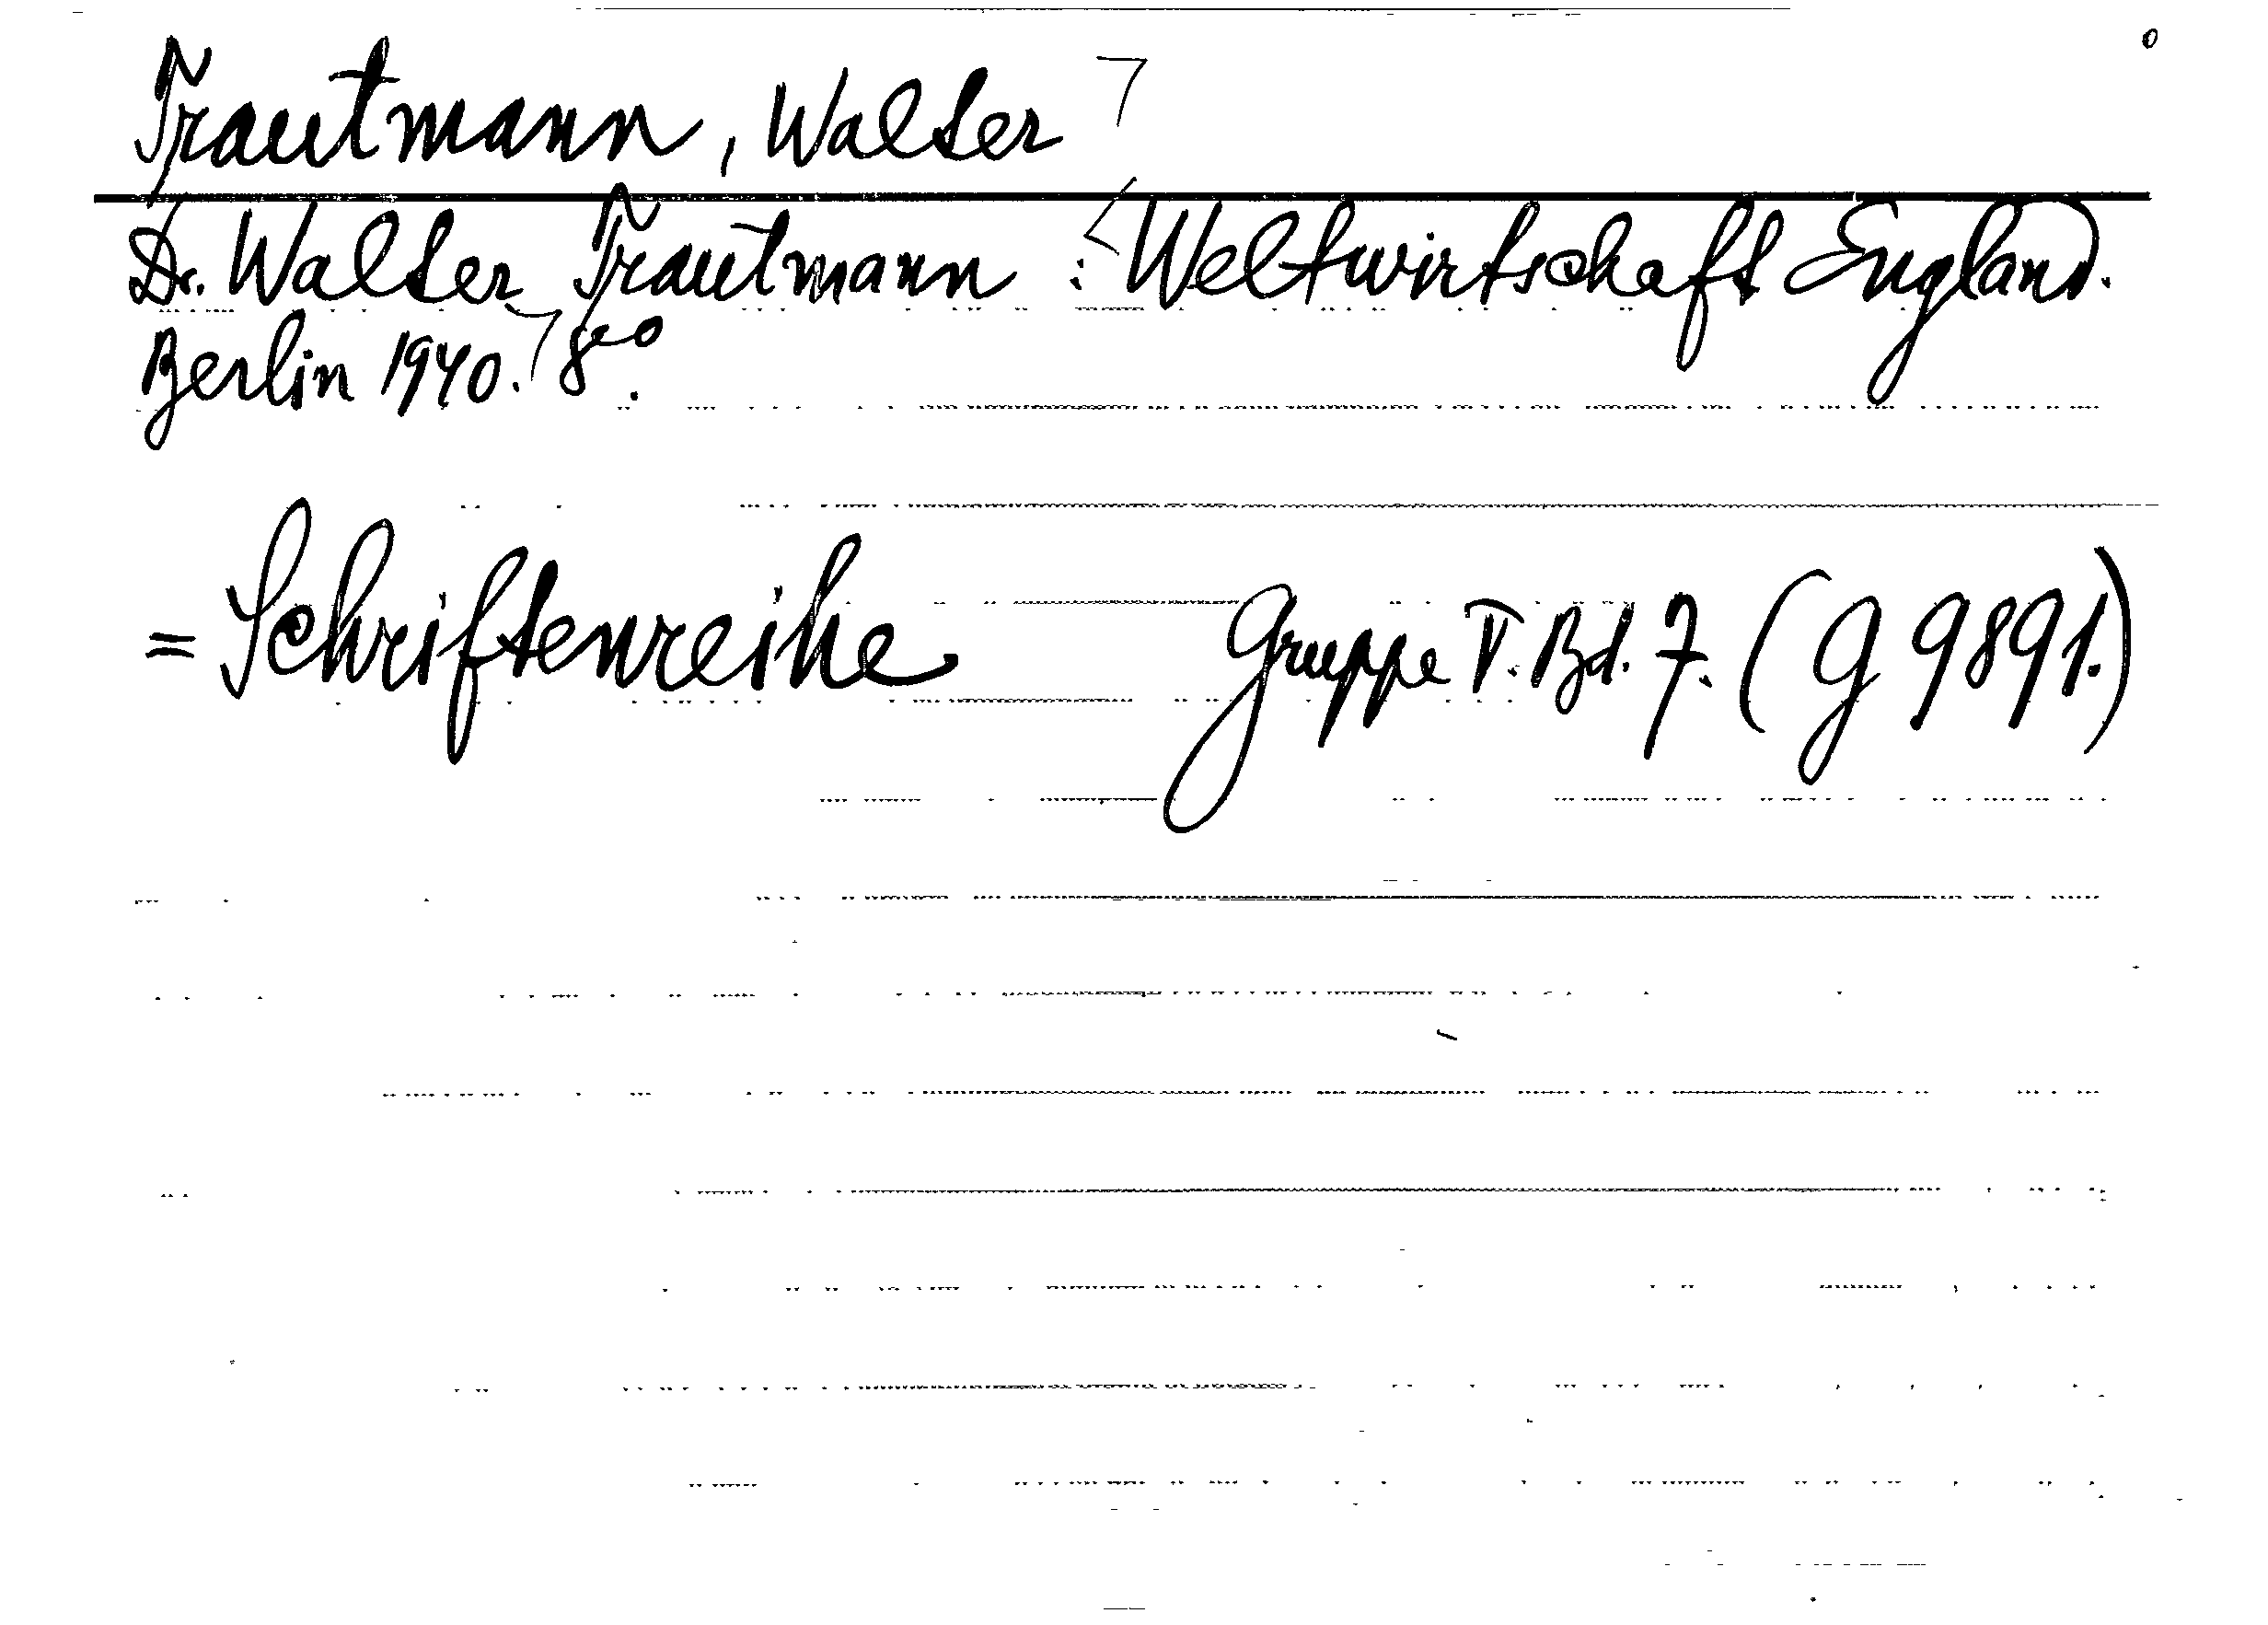 Trautmann, Walter
Dr. Walter Trautmann: Weltwirtschaft England.
Berlin 1940. 8°.
= Schriftenreihe Gruppe V. Bd. 7. (G 9891.)